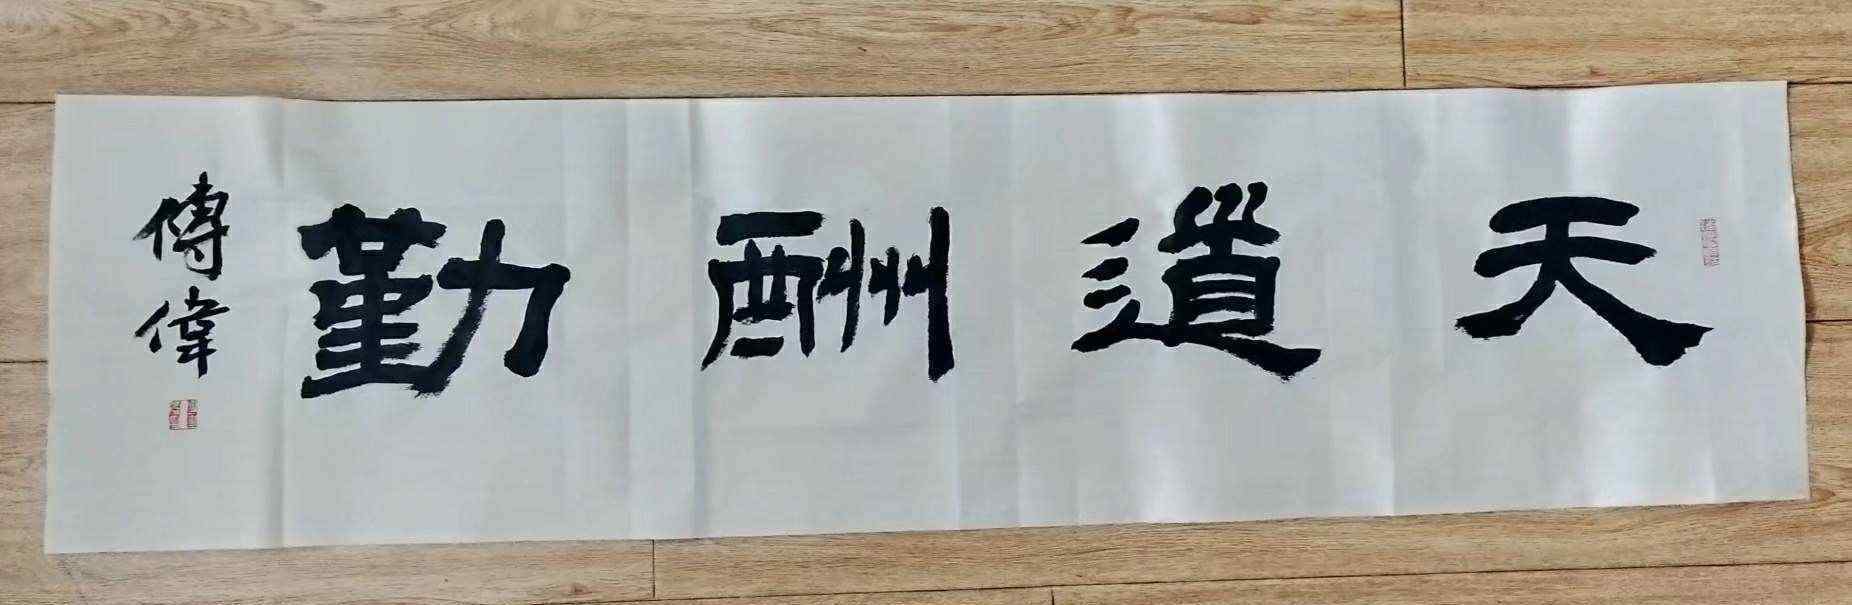 天道酬勤
傅偉